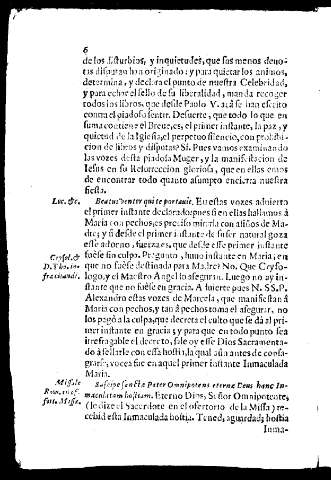 6
de los disturbios, y inquietudes, que sus menos devo-
tas disputas han originado: y para quietar los animos,
determina, y declara el punto de nuestra Celebridad,
y para echar el sello de su liberalidad, manda recoger
todos los libros, que desde Paulo V. acà se han escrito
contra el piadoso sentir. De suerte, que todo lo que en
suma contiene el Breve, es, el primer instante, la paz, y
quietud de la Iglesia, el perpetuo silencio, con prohibi-
cion de libros y disputas? Si. Pues vamos examinando
las vozes desta piadosa Muger, y la manifestacion de
Iesus en su Resurreccion gloriosa, que en ellas emos
de encontrar todo quanto assumpto encierra nuestra
fiesta.
Luc. &c. Beatus venter qui te portavit. En estas vozes advierto
el primer instante declarado; pues si en ellas hallamos à
Maria con pechos, es preciso mirarla con assiños de Ma-
dre; y si desde el primer instante de su ser natural goza
este adorno, fuerza es, que desde esse primer instante
fuesse sin culpa. Pregunto, huvo instante en Maria, en
Crysol. & que no fuesse destinada para Madre? No. Que Cryso-
D. Tho. in- logo, y el Maestro Angel lo asseguran. Luego no ay in-
fra citandi. stante que no fuesse en gracia. A fuerte pues N. SS. P.
Alexandro estas vozes de Marcela, que manifiestan à
Maria con pechos, y tan à pechos toma el assegurar, no
los pagò a la culpa, que decreta el culto que se dà al pri-
mer instante en gracia: y para que en todo punto sea
irrefragable el decreto, sale oy esse Dios Sacramenta-
do à sellarle con essa hostia, la qual aùn antes de consa-
grarse, vozes fue en aquel primer instante Inmaculada
Maria.
Missale Suscipe sancte Pater Omnipotens eterne Deus hanc In-
Rom. in of- maculatam hostiam. Eterno Dios, Señor Omnipotente,
fert. Missæ. (le dize el Sacerdote en el ofertorio de la Missa) re-
cebid esta Inmaculada hostia. Tened, aguardad; hostia
Inma-